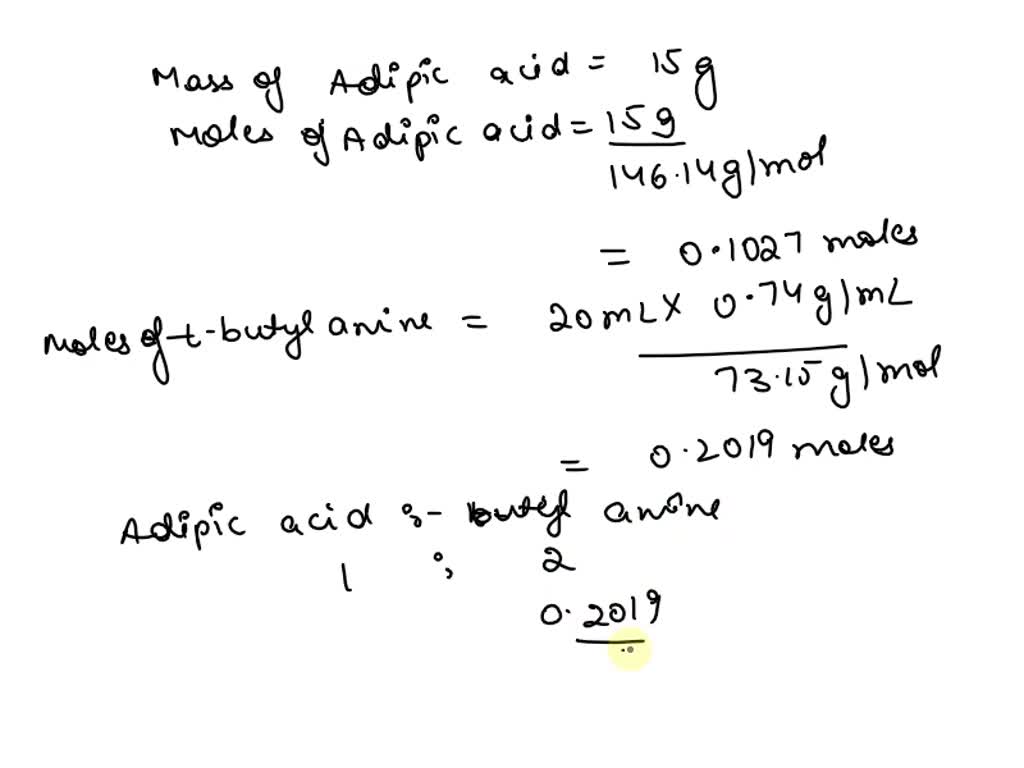 Mass of Adipic acid = 15 g
Moles of Adipic acid = 15 g
146.14 g/mol
= 0.1027 moles
Moles of t-butyl amine = 20 mL x 0.74 g/mL
73.15 g/mol
= 0.2019 moles
Adipic acid :- butyl amine
1 : 2
0.2019